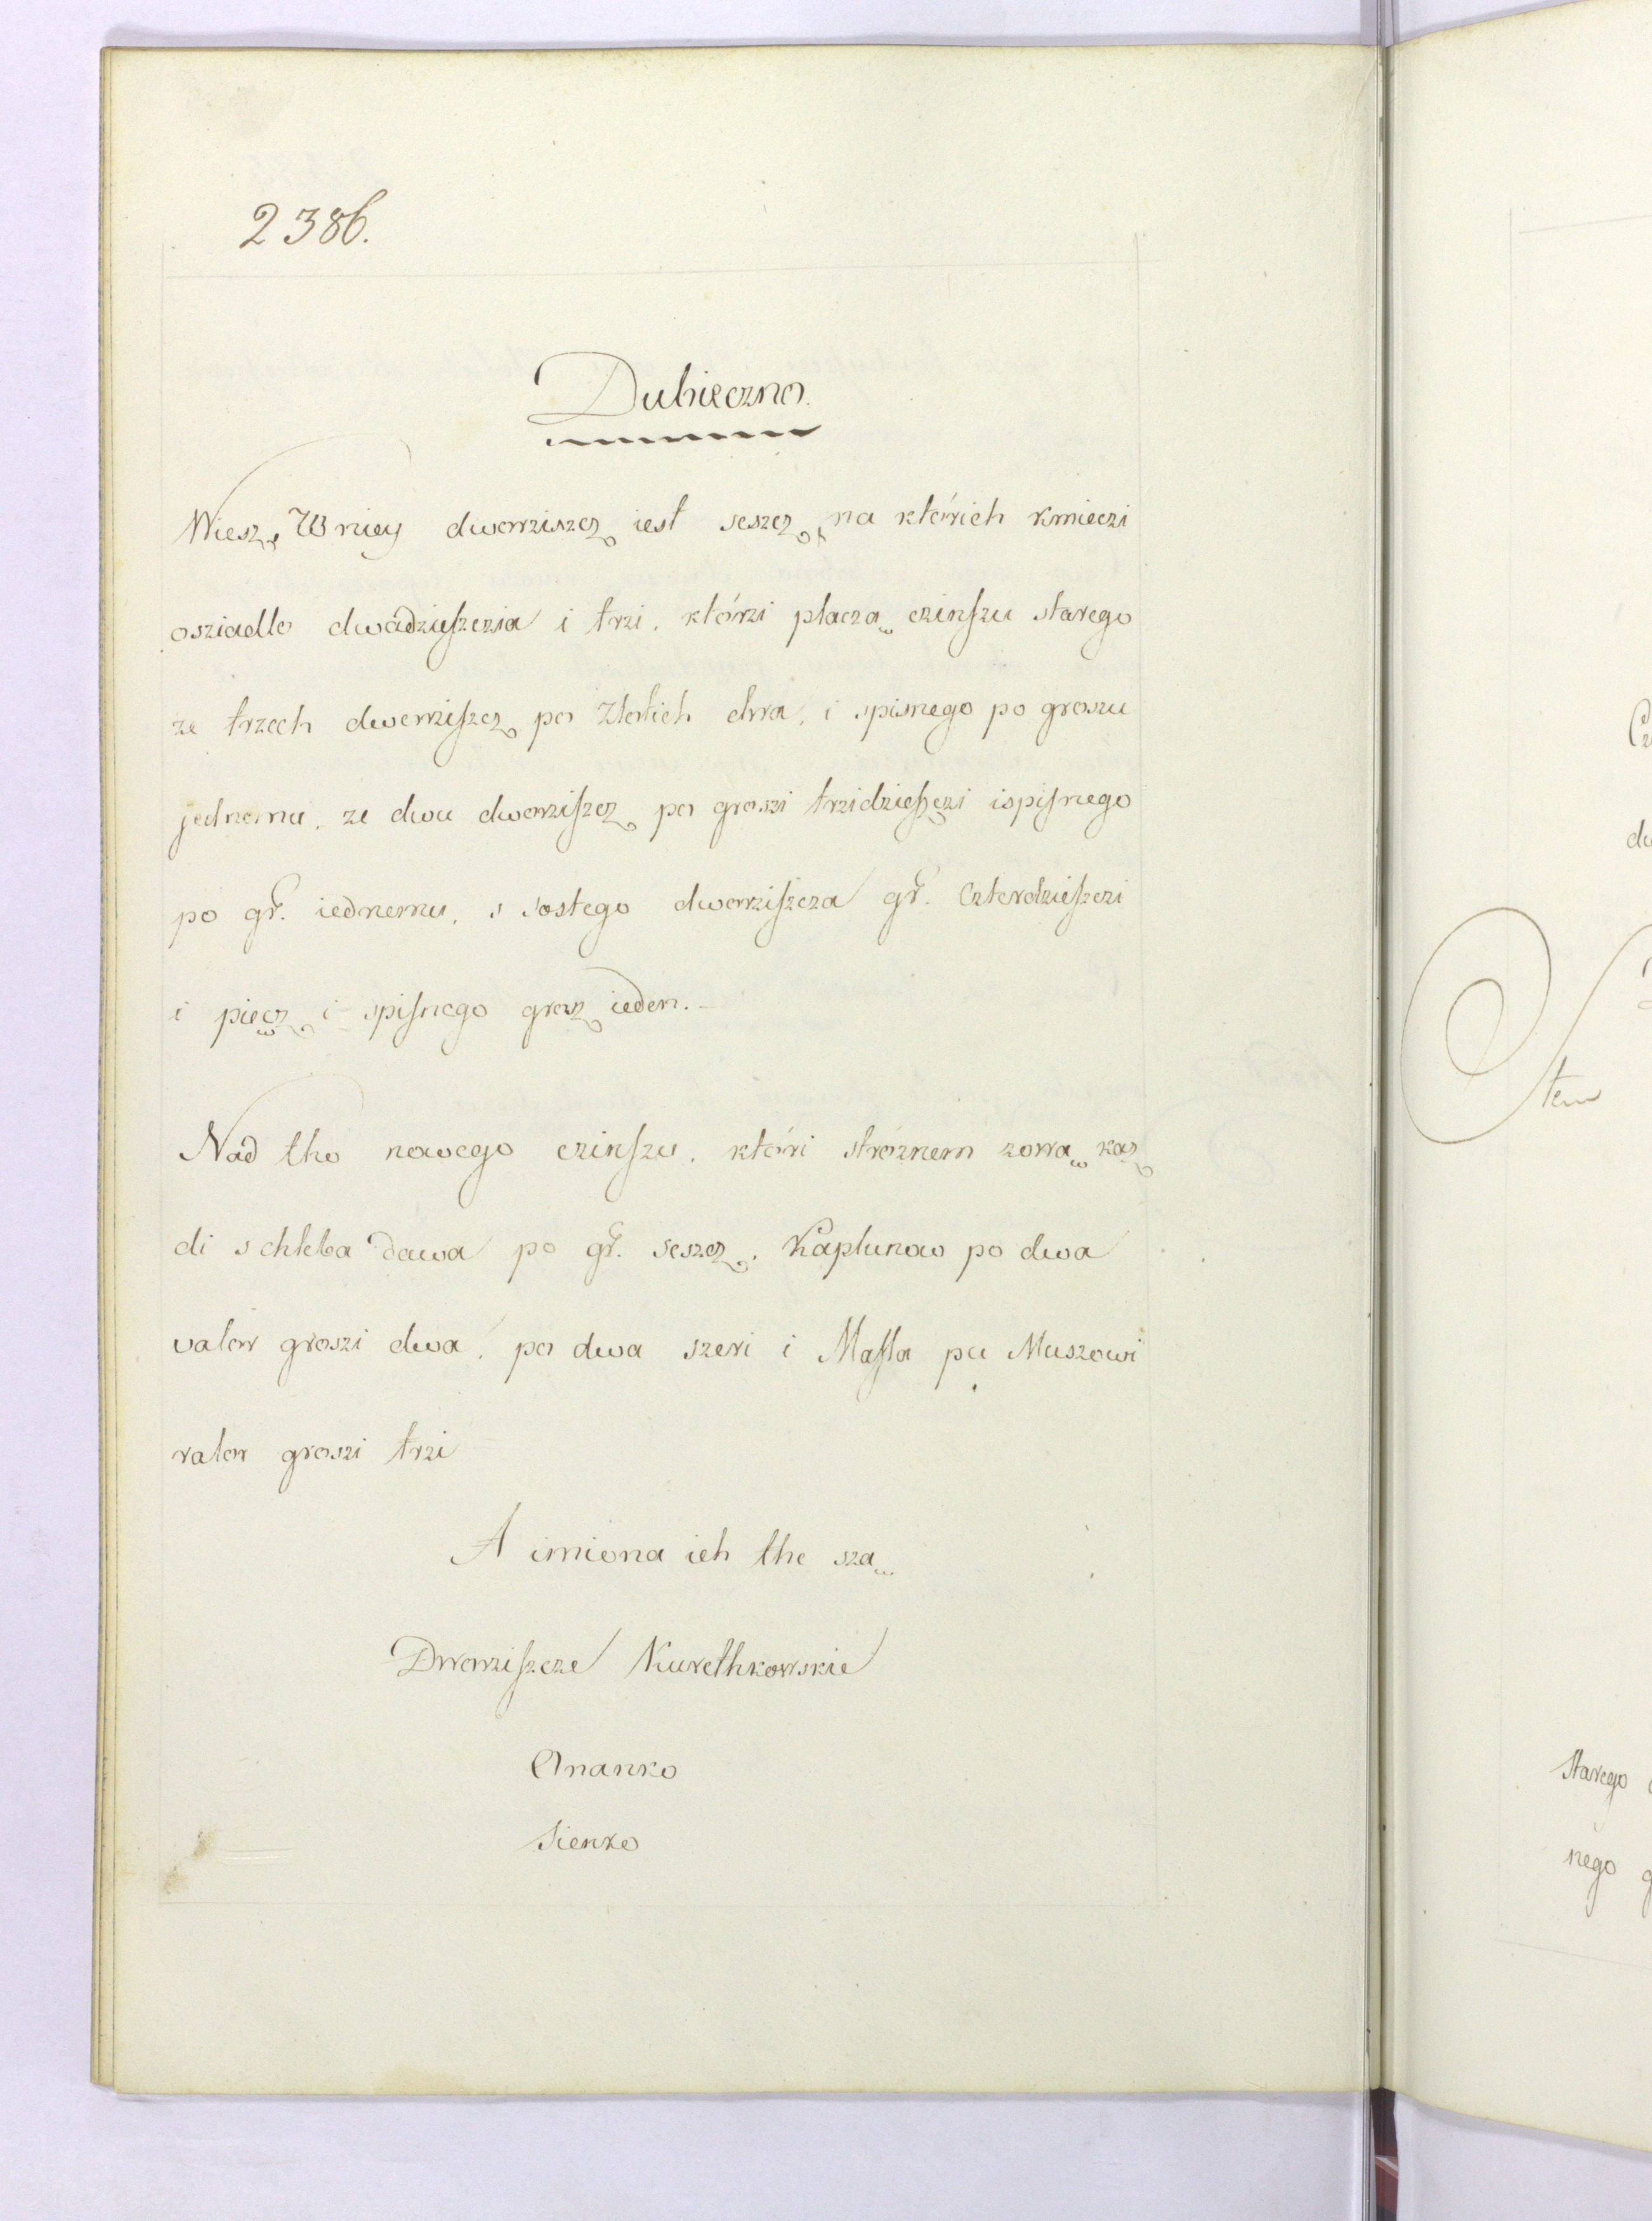 2386.
Dubieczno.
Wiesz, W niey dworziszcz iest seszcz, na którich kmieczi
osziadlo dwadzieſzczia i trzi, którzi płacza̧ czinſzu starego
ze trzech dworziſzcz po Złotich dwa, i spisnego po groszu
jednemu, ze dwu dworziſzcz po groszi trzidzieſzczi ispiſnego
po gr. iednemu, s sostego dworziſzcza gr. Czterdzieſzczi
i pięcz i spiſnego grosz ieden.
Nad tho nowego czinſzu, któri stróznem zowa̧ kaz
di s chleba dawa po gr. seszcz. Kapłunow po dwa
valor groszi dwa, po dwa szeri i Maſla pu Muszowi
valor groszi trzi
A imiona ich the sza̧
Dworziſzcze Kurethkowskie
Ananko
Sienko
tem
Starego
nego